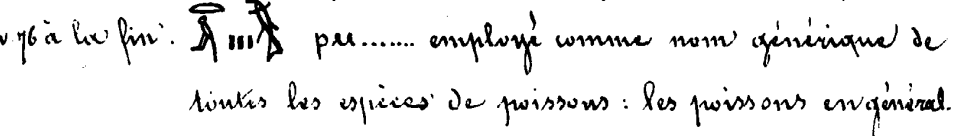 76 à la fin. per....... employé comme nom générique de
toutes les espèces de poissons : les poissons en général.